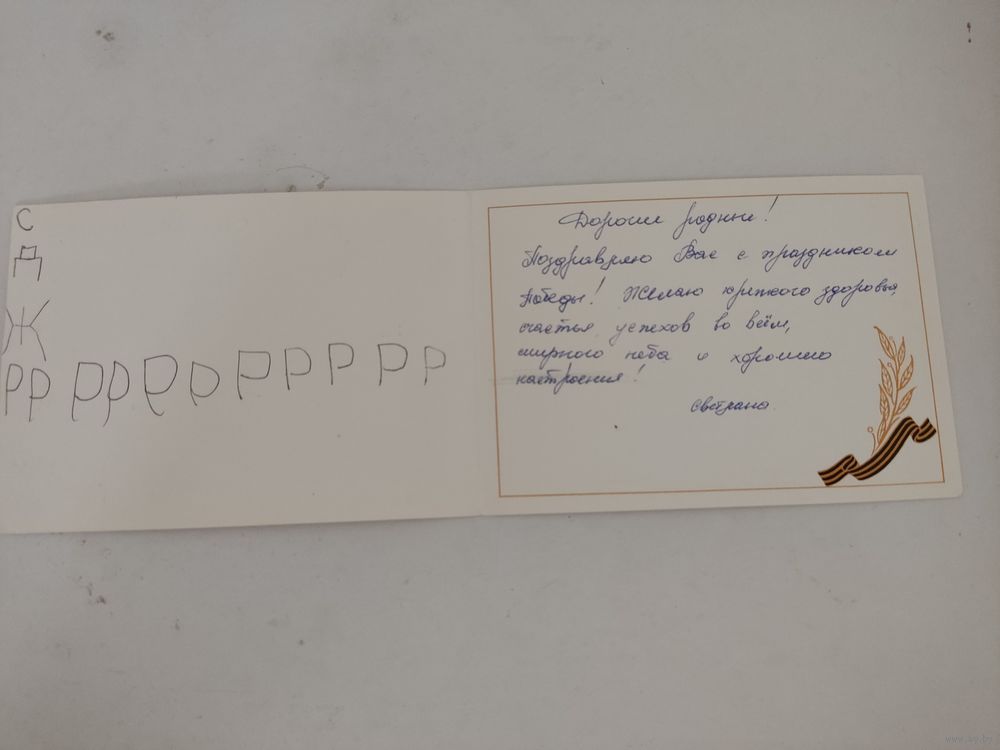 С
Д
Ж
РР РРРР РРР РР
Дорогие родные!
Поздравляю Вас с праздником
Победы! Желаю крепкого здоровья,
счастья, успехов во всём,
мирного неба и хорошего
настроения!
Светлана